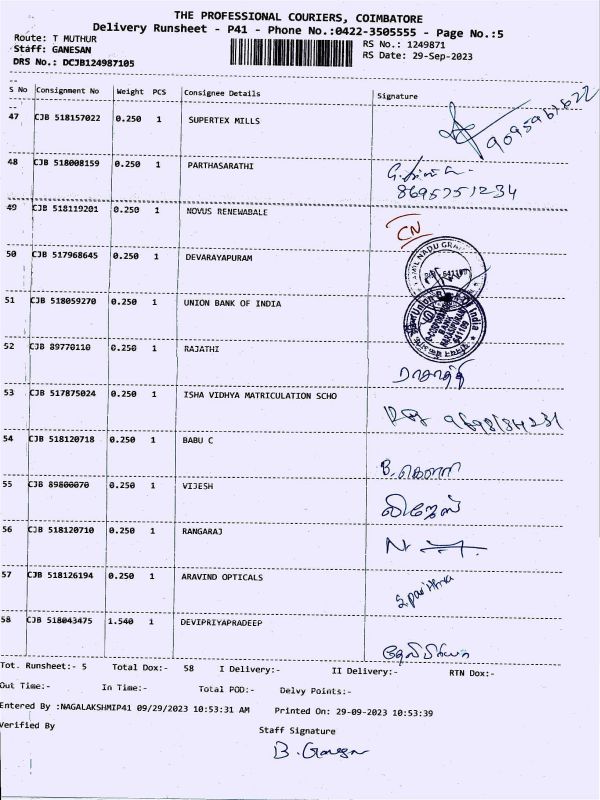 THE PROFESSIONAL COURIERS, COIMBATORE
Delivery Runsheet - P41 - Phone No.:0422-3505555 - Page No.:5
Route: T MUTHUR
RS No.: 1249871
Staff: GANESAN
RS Date: 29-Sep-2023
DRS No.: DCJB124987105
S No Consignment No Weight PCS Consignee Details Signature
47 CJB 518157022 0.250 1 SUPERTEX MILLS
48 CJB 518008159 0.250 1 PARTHASARATHI
8695751234
49 CJB 518119201 0.250 1 NOVUS RENEWABALE
CN
50 CJB 517968645 0.250 1 DEVARAYAPURAM
51 CJB 518059270 0.250 1 UNION BANK OF INDIA
52 CJB 89770110 0.250 1 RAJATHI
ராசாத்தி
53 CJB 517875024 0.250 1 ISHA VIDHYA MATRICULATION SCHO
54 CJB 518120718 0.250 1 BABU C
55 CJB 89800070 0.250 1 VIJESH
விஜேஸ்
56 CJB 518120710 0.250 1 RANGARAJ
57 CJB 518126194 0.250 1 ARAVIND OPTICALS
58 CJB 518043475 1.540 1 DEVIPRIYAPRADEEP
தேவிபிரியா
Tot. Runsheet:- 5 Total Dox:- 58 I Delivery:- II Delivery:- RTN Dox:-
Out Time:- In Time:- Total POD:- Delvy Points:-
Entered By :NAGALAKSHMIP41 09/29/2023 10:53:31 AM Printed On: 29-09-2023 10:53:39
Verified By
Staff Signature